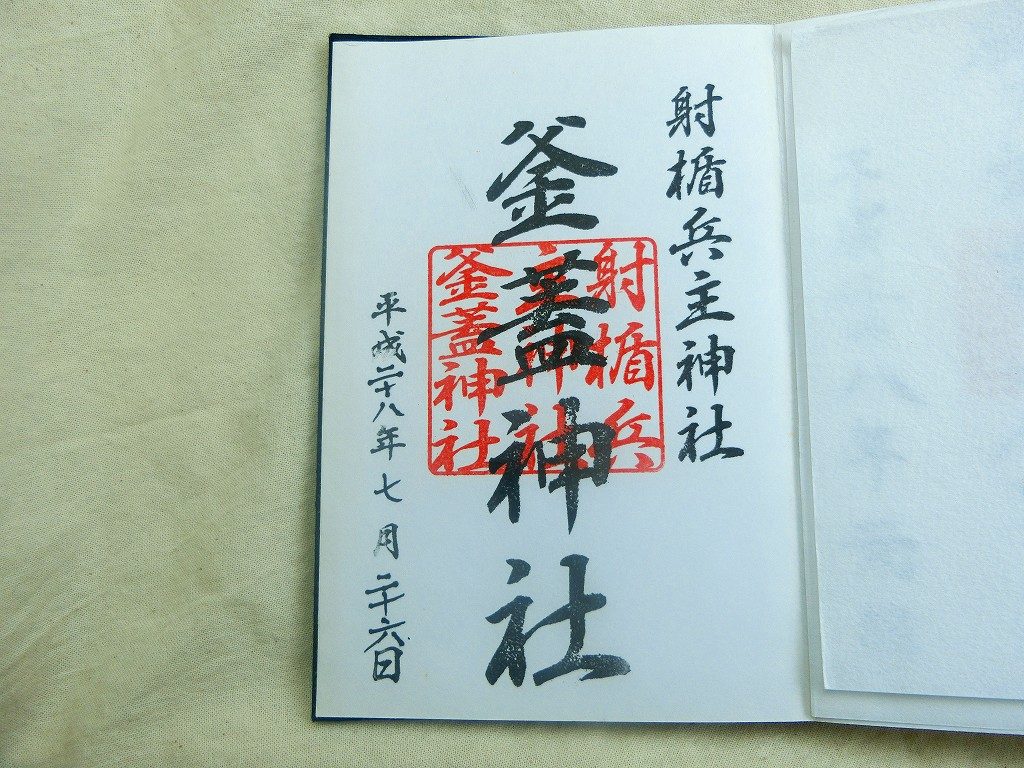 射楯兵主神社
釜蓋神社
射楯兵
主神社
釜蓋神社
平成二十八年七月二十六日